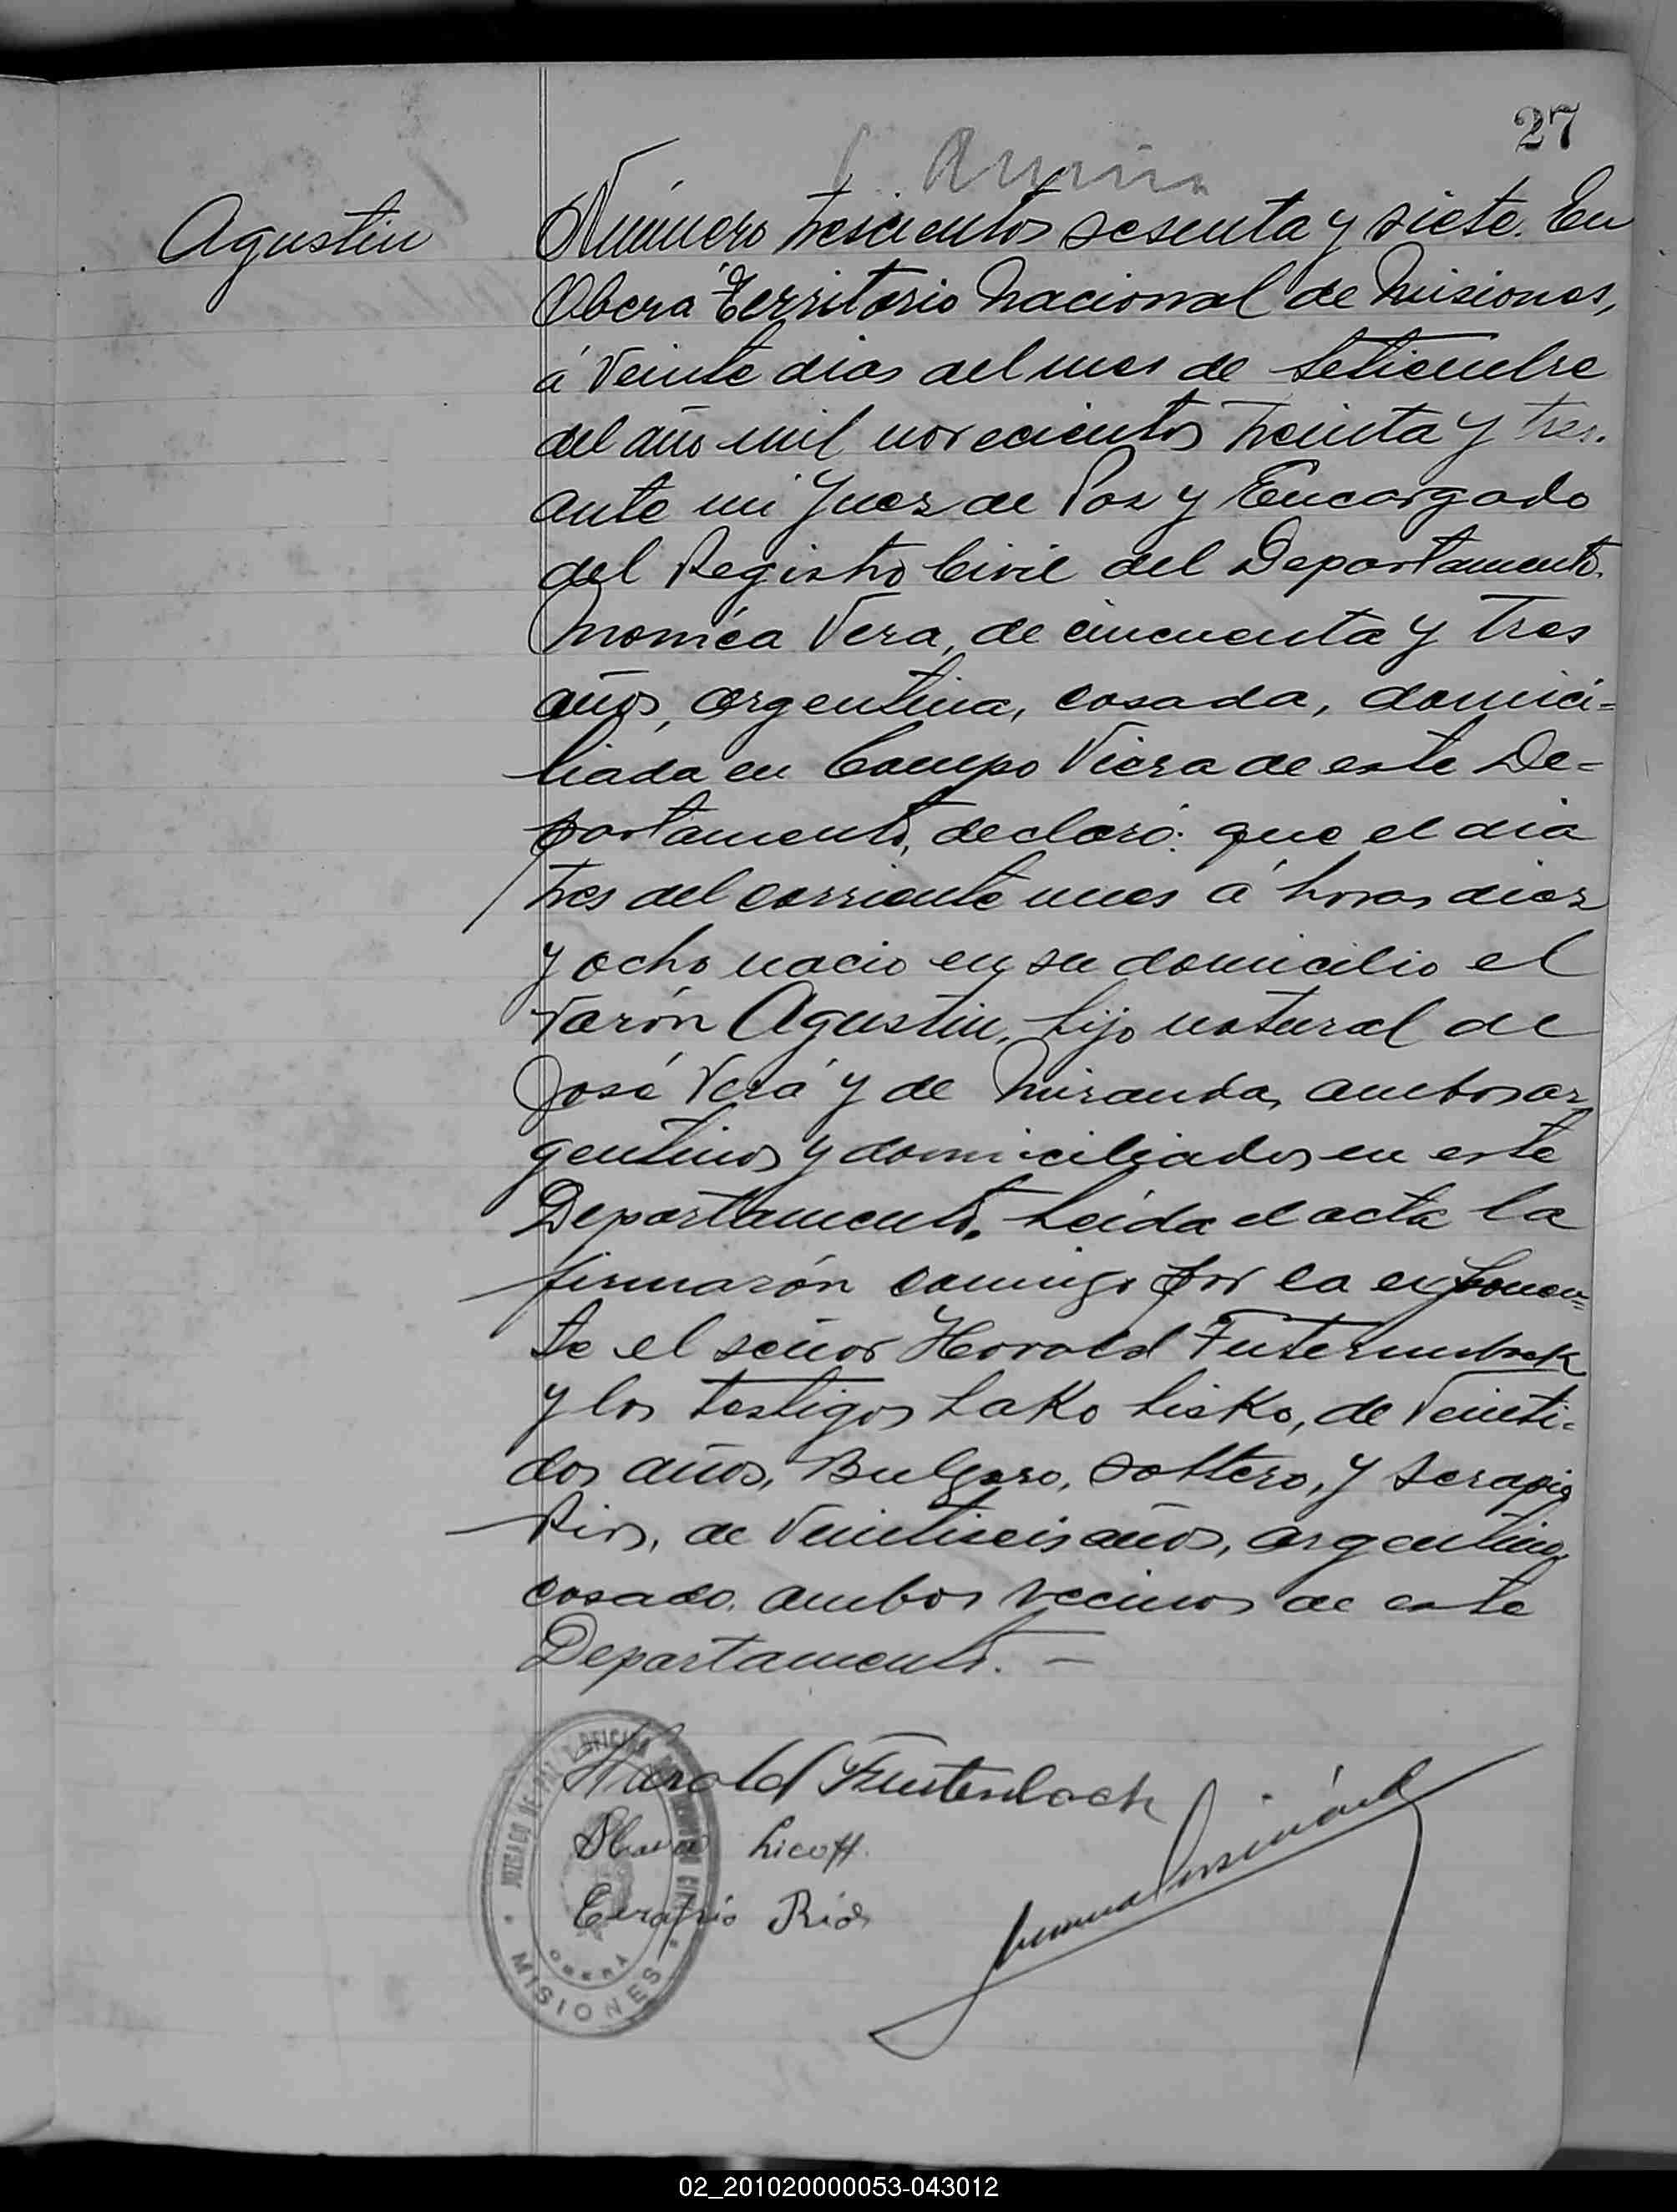 27
Agustin
Número trescientos sesenta y siete. En
Oberá Territorio Nacional de Misiones,
á veinte dias del mes de Setiembre
del año mil novecientos treinta y tres.
ante mi Juez de Paz y Encargado
del Registro Civil del Departamento.
Monica Vera, de cincuenta y tres
años, argentina, casada, domici=
liada en Campo Viera de este De=
partamento, declaró: que el dia
tres del corriente mes á horas diez
y ocho nacio en su domicilio el
varón Agustin, hijo natural de
José Verá y de Miranda, ambos ar
gentinos y domiciliados en este
Departamento. Leida el acta la
firmarón conmigo por la exponen=
te el señor Harold
y los testigos Lako Lisko, de veinti=
dos años, Bulgaro, soltero, y Serapio
Rios, de veintiseis años, argentino,
casado. ambos vecinos de este
Departamento. —
Harold
Licoff.
Cerapio Riós
JUZGADO DE PAZ Y OFICINA DEL REGISTRO CIVIL
OBERÁ
MISIONES
02_201020000053-043012